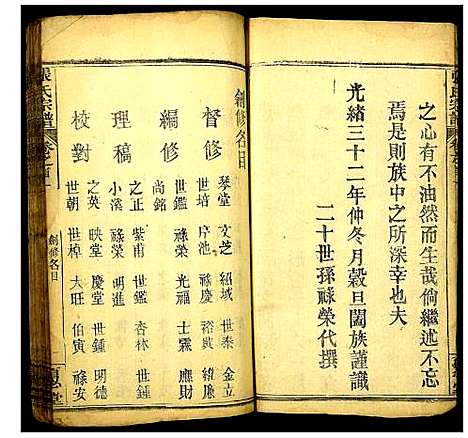 之心有不油然而生哉倘繼述不忘
焉是則族中之所深幸也夫
光緒三十二年仲冬月穀旦闔族謹識
二十世孫祿榮代撰
創修名目
督修
琴堂 文芝 紹域 世泰 金立
世培 序池 祿慶 裕貴 維廉
編修
世鑑 祿榮 光福 士廉 應財
尚銘
理稿
之正 紫甫 世鑑 杏林 世鍾
小溪 祿榮 明進
校對
之英 映堂 慶堂 世鍾 明德
世朝 世槕 大旺 伯寅 祿安
張氏宗譜
卷之首
創修名目
堂